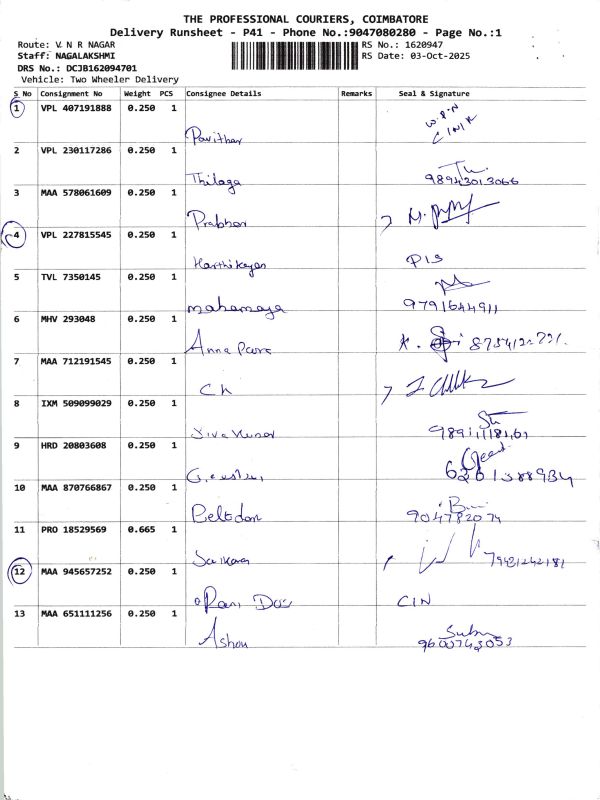 THE PROFESSIONAL COURIERS, COIMBATORE
Delivery Runsheet - P41 - Phone No.:9047080280 - Page No.:1
Route: V N R NAGAR RS No.: 1620947
Staff: NAGALAKSHMI RS Date: 03-Oct-2025
DRS No.: DCJB162094701
Vehicle: Two Wheeler Delivery
S No Consignment No Weight PCS Consignee Details Remarks Seal & Signature
1 VPL 407191888 0.250 1
Pavithar
2 VPL 230117286 0.250 1
Thilaga
3 MAA 578061609 0.250 1
Prabhar
4 VPL 227815545 0.250 1
Harthikeyan P13
5 TVL 7350145 0.250 1
mahamaya 9791644911
6 MHV 293048 0.250 1
Anna
7 MAA 712191545 0.250 1
CK
8 IXM 509099029 0.250 1
Siva Kumar
9 HRD 20803608 0.250 1
10 MAA 870766867 0.250 1
Beltodan 9047782074
11 PRO 18529569 0.665 1
Saikara
12 MAA 945657252 0.250 1
Rani CIN
13 MAA 651111256 0.250 1
Ashou 9600743053